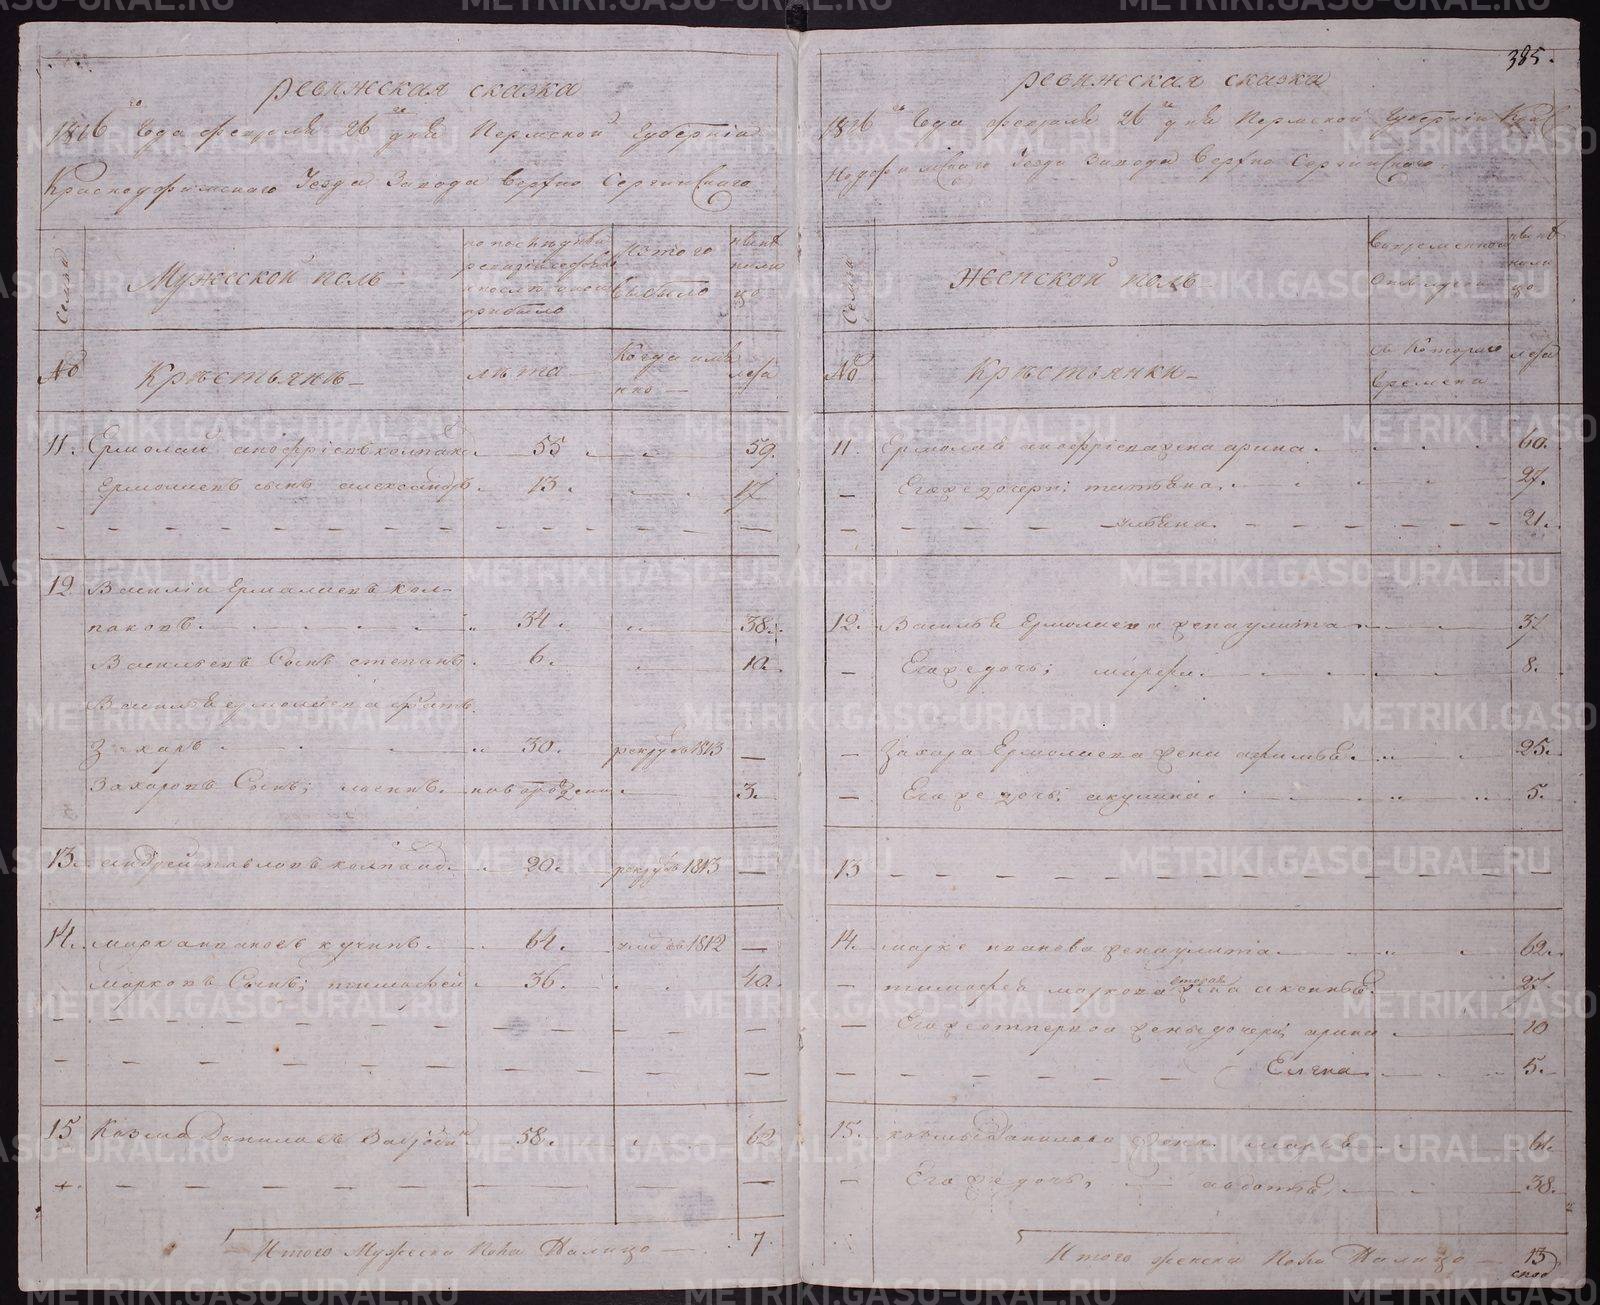 ревижская сказка
1816 го Года февраля 26 го дня Пермской Губернiи
Красноуфимскаго Уезда Завода Верхно Сергинскаго
Семьи
Мужеской полъ
по последней
ревизiи состояло
и после оной
прибыло
Изъ того
выбыло
ныне
на ли
цо
№
Крѣстьянѣ
лѣта
Когда имѣ
нно
лета
11. Ермолай анофрiевъ колпаков 55 59.
Ермолаевъ сынъ александръ 13. 17
12 Василiи Ермалаевъ кол-
паковъ. 34. 38.
Васильевъ Сынъ степанъ 6. 10.
Василья ермолаева братъ
Захаръ 30. рекрут въ 1813
Захаровъ Сынъ; новорожден 3.
13. андрей павловъ колпаков 20. рекрут въ 1813
14. марка ивановъ кучинъ 64. умре въ 1812
марковъ Сынъ; тимофей 36. 40.
15 Козма Даниловъ 58. 62
Итого Мужеска пола Налицо 7
385.
ревижская сказка
1816 го Года февраля 26 го дня Пермской Губернiи Крас
ноуфимскаго Уезда Завода Верхно Сергинскаго
Семьи
Женской полъ
Во временной
отлучке
ныне
нали
цо
№
Крѣстьянки
съ Котораго
времени
лета
11 Ермолая анофрiева жена арина. 60.
Егоже дочери; татьяна. 27.
ульяна. 21.
12. Василья Ермолаева жена улита 37
Егоже дочь; марфа 8.
Захара Ермолаева жена 25.
Егоже дочь; акулина 5.
13
14. марке иванова жена улита 62.
тимофея маркова вторая жена аксинья 27.
Егоже от первой жены дочери; ирина 10
Елена 5.
15. козмы Данилова жена марья 61.
Егоже дочь, авдотья, 38.
Итого женска пола Налицо 13
METRIKI.GASO-URAL.RU